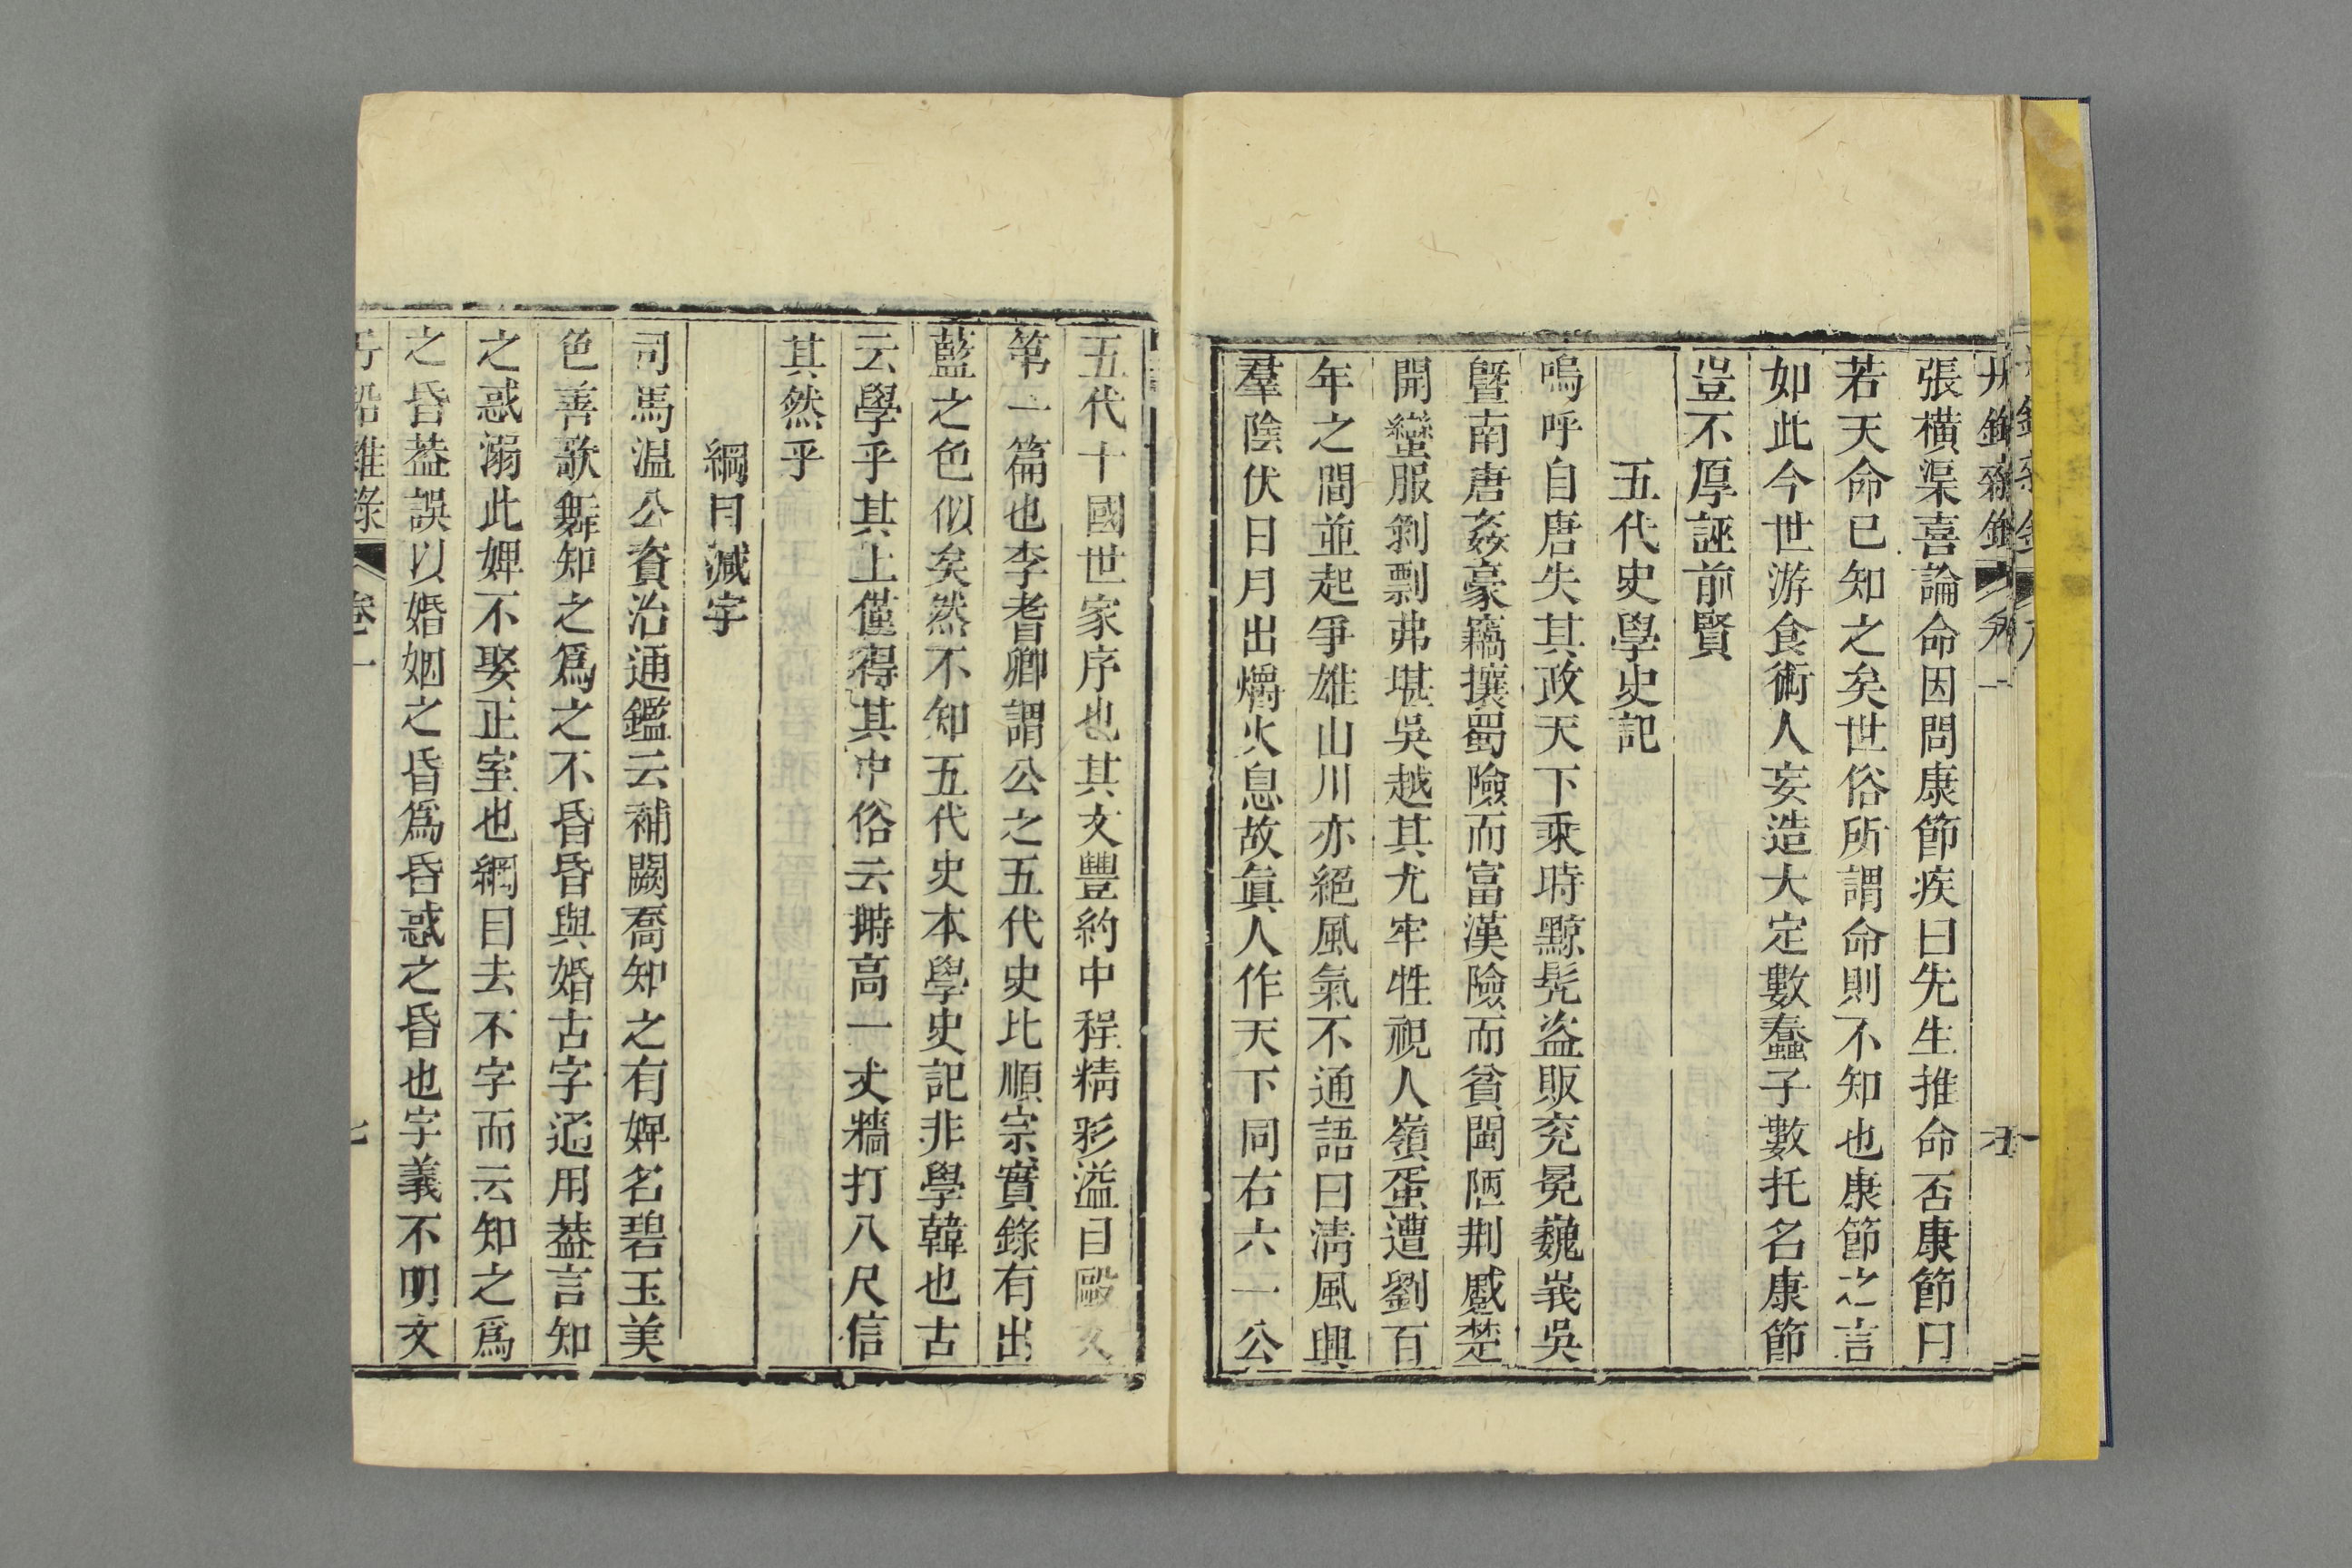 張橫渠喜論命因問康節疾曰先生推命否康節曰
若天命已知之矣世俗所謂命則不知也康節之言
如此今世游食術人妄造大定數蠢子數托名康節
豈不厚誣前賢
五代史學史記
嗚呼自唐失其政天下乘時黥髡盗販兖冕巍峩吳
曁南唐姦豪竊攘蜀險而富漢險而貧閩陋荆蹙楚
開蠻服剝剽弗堪吳越其尤牢牲視人嶺蛋遭劉百
年之間並起爭雄山川亦絕風氣不通語曰淸風興
羣陰伏日月出爝火息故眞人作天下同右六一公
五代十國世家序也其文豐約中程精彩溢目毆文
第一篇也李耆卿謂公之五代史比順宗實錄有出
藍之色似矣然不知五代史本學史記非學韓也古
云學乎其上僅得其中俗云搟高一丈牆打八尺信
其然乎
綱目減字
司馬温公資治通鑑云補闕喬知之有婢名碧玉美
色善歌舞知之爲之不昏昏與婚古字通用葢言知
之惑溺此婢不娶正室也綱目去不字而云知之爲
之昏葢誤以婚姻之昏爲昏惑之昏也字義不明文
卷一